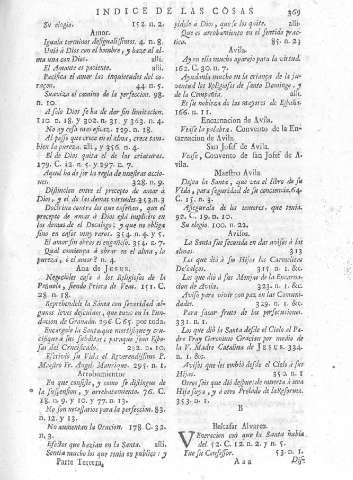 INDICE DE LAS COSAS
369
Su elogio. 152. n. 2.
Amor.
Iguala terminos desigualissimos. 4. n. 8.
Unió à Dios con el hombre, y haze al alma una con Dios. alli.
El Amante es paciente. alli.
Pacifica el amor las inquietudes del coraçon. 44. n. 5.
Suaviza el camino de la perfeccion. 98. n. 10.
A solo Dios se ha de dar sin limitacion. 110. n. 18. y 302. n. 31. y 363. n. 4.
No ay cosa mas eficaz. 129. n. 18.
Al passo que crece el amor, crece tambien la pureza. alli, y 356. n. 4.
El de Dios quita el de las criaturas. 179. C. 12. n. 5. y 297. n. 7.
Aqui ha de ser la regla de nuestras acciones. 328. n. 9.
Distincion entre el precepto de amar à Dios, y el de las demas virtudes. 353. n. 3
Doctrina contra los que enseñan, que el precepto de amar à Dios està implicito en los demas del Decalogo; y que no obliga sino en casos muy raros. 354. n. 4. y 5.
El amar sin obras es engañoso. 354. n. 7.
Qual comience à obrar en el alma, la pureza, ò el amor? n. 4.
Ana de Jesus.
Reprehendela la Santa con severidad algunos leves descuidos, que tuvo en la Fundacion de Granada. 296. C. 65. por toda.
Escriviò su Vida el Reverendissimo P. Maestro Fr. Angel Manrique. 295. n. 1.
Arrobamientos
En que consiste, y como se distingue de la suspension, y arrebatamiento. 76. C. 18. n. 9. y 10. y 77. n. 13.
No son necessarios para la perfeccion. 83. n. 12. y 13.
No aumentan la Oracion. 178. C. 32. n. 3.
Efectos que hazian en la Santa. alli.
Sentia mucho los que tenia en publico: y
Parte Tercera,
pidiòle à Dios, que se los quite. alli.
Que es arrobamiento en el sentido practico. 85. n. 23
Avila.
Ay en ella mucho aparejo para la virtud. 162. C. 30. n. 7.
Ayudando mucho en la criança de la juventud los Religiosos de Santo Domingo, y de la Compañia. alli.
Es su nobleza de las mayores de España. 166. n. 11.
Encarnacion de Avila.
Vease la palabra, Convento de la Encarnacion de Avila.
San Josef de Avila.
Vease, Convento de san Josef de Avila.
Maestro Avila
Dessea la Santa, que vea el libro de su Vida, para seguridad de su conciencia. 64. C. 15. n. 3.
Assegurala de los temores, que tenia. 92. C. 19. n. 10.
Su elogio. 100. n. 22.
Avisos.
La Santa fue sacada en dar avisos à las almas. 313
Los que diò à sus Hijas las Carmelitas Descalças. 315. n. 1. &c.
Los que diò à sus Monjas de la Encarnacion de Avila. 323. n. 1. &c.
Avisos para vivir con paz en las Comunidades. 329. n. 1. &c.
Para sacar fruto de las persecuciones. 331. n. 1.
Los que diò la Santa desde el Cielo al Padre Fray Geronimo Gracian por medio de la V. Madre Catalina de Jesus. 334. n. 1. &c.
Avisos que les embiò desde el Cielo à sus Hijas. 352. n. 1
Otros seis que diò despues: de muerta à una Hija suya, y à otro Prelado de la Reforma. 353. n. 1.
B
Baltasar Alvarez.
Veneracion con que la Santa habla del. 52. C. 12. n. 2. y n. 5.
Fue su Confessor. 53. n. 1.
Aaa